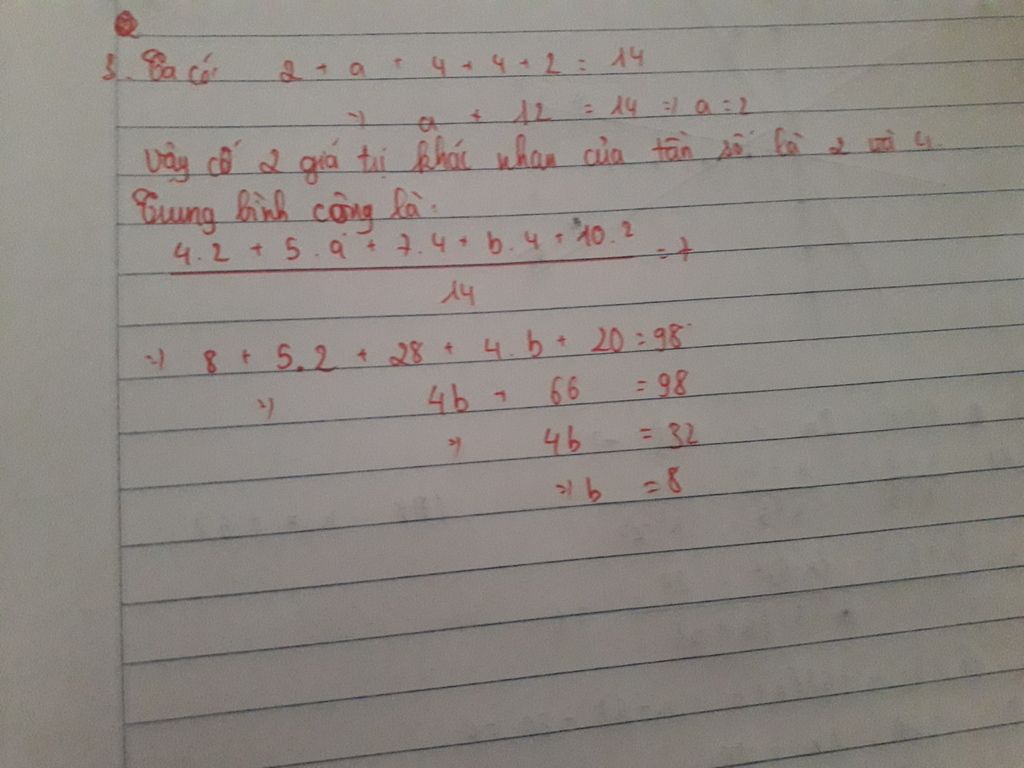 3. Ta có: 2 + a + 4 + 4 + 2 = 14
=> a + 12 = 14 => a = 2
Vậy có 2 giá trị khác nhau của tần số là 2 và 4.
Trung bình cộng là:
4.2 + 5.a + 7.4 + b.4 + 10.2 = 7
14
=> 8 + 5.2 + 28 + 4.b + 20 = 98
=> 4b + 66 = 98
=> 4b = 32
=> b = 8